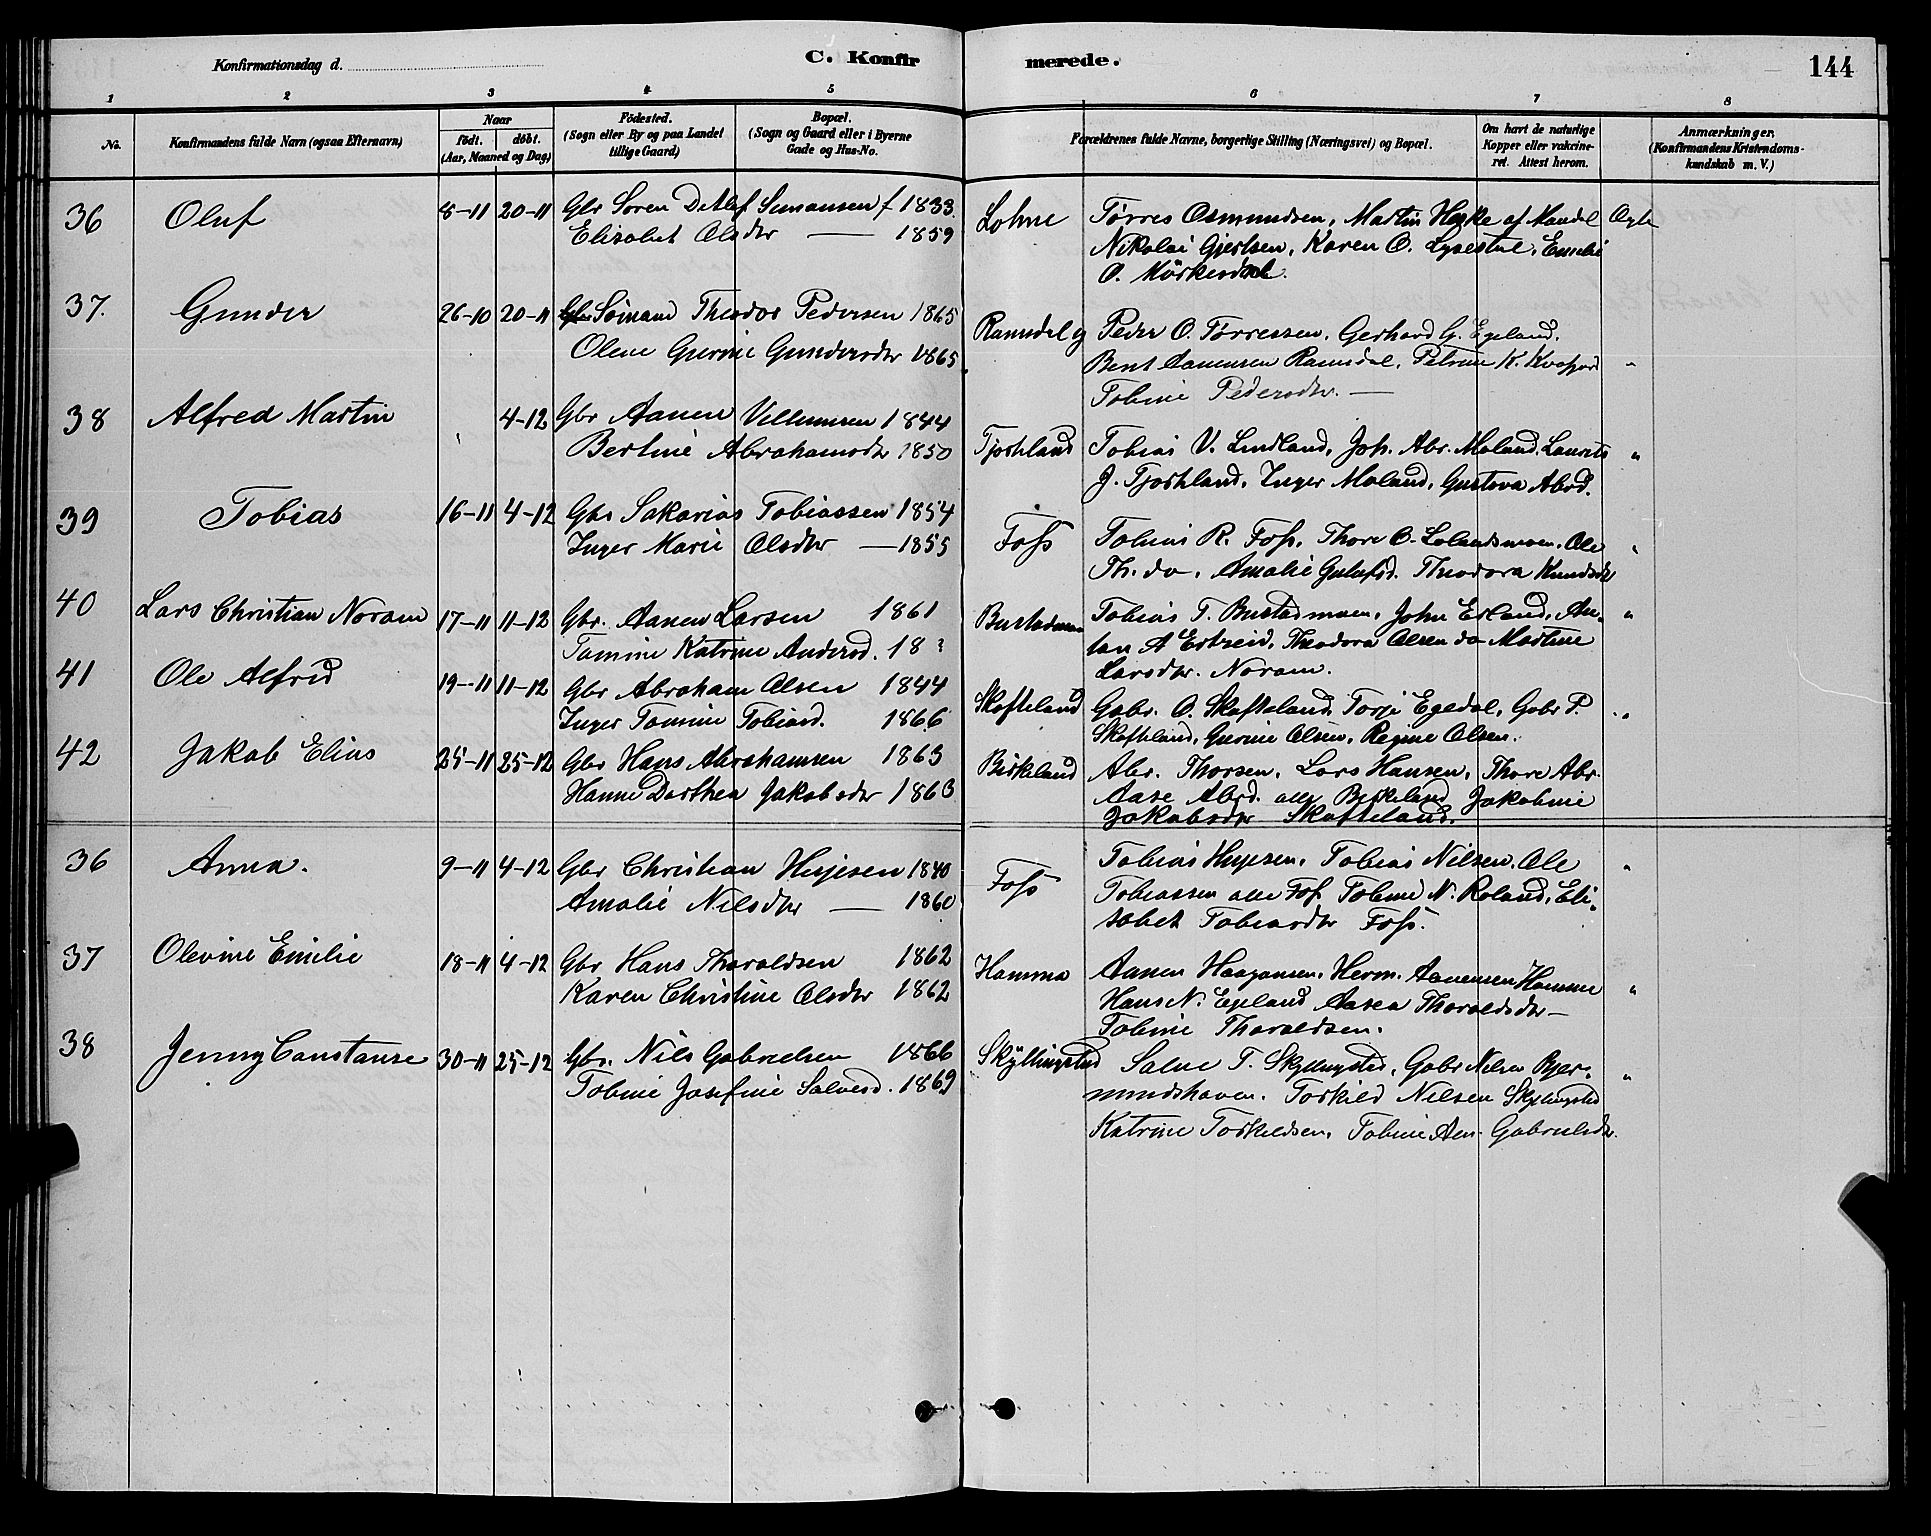 Konfirmationsdag d.
C. Konfir merede. 144
1 2 3 4 5 6 7 8
No. Konfirmandens fulde Navn (ogsaa Efternavn) Naar födt. döbt. (Aar, Maaned og Dag) Födested. (Sogn eller By og paa Landet tillige Gaard) Bopæl. (Sogn og Gaard eller i Byerne Gade og Hus-No. Forældrenes fulde Navne, borgerlige Stilling (Næringsvei) og Bopæl. Om havt de naturlige Kopper eller vakcineret. Attest herom. Anmærkninger. (Konfirmandens Kristendomskundskab m. V.)
36 Oluf 8-11 20-11 Gbr Soren Detlef Simonsen f 1833. Lohne Tørres Osmundsen, Martin Heske af Mandal Ægte
Elisabet Olsdtr — 1859 Nikolai Gjertsen, Karen O. Lysestøl, Emelie
O. Mörkesdal.
37. Gunder 26-10 20-11 Sömand Theodor Pedersen 1865 Ramsdal Peder O. Tørressen, Gerhard G. Egeland,
Olene Gurine Gundersdtr 1865 Bent Aanensen Ramsdal, Petrine K. Kvafjord "
Tobine Pedersdtr. —
38 Alfred Martin 4-12 Gbr Aanen Villumsen 1844 Tjoshland Tobias V. Lindland, Joh. Abr. Moland, Laurits "
Bertine Abrahamsdtr 1850 J. Tjoshland, Inger Moland, Gustava Abrd.
39 Tobias 16-11 4-12 Gbr Sakarias Tobiassen 1854 Foss Tobias R. Foss, Thore O. Lolandsmoen, Ole "
Inger Marie Olsdtr — 1855 Th. do, Amalie Gulufsd. Theodora Knudsdtr
40 Lars Christian Noram 17-11 11-12 Gbr. Aanen Larsen 1861 Bustadmoen Tobias T. Bustadmoen, John Erland, An- "
Tomine Katrine Andersd. 18 ? ton A Ertzeid, Theodora Olsen do Martine
Larsdtr. Noram.
41 Ole Alfred 19-11 11-12 Gbr Abraham Olsen 1844 Skofteland Gabr. O. Skofteland, Torje Egedal, Gabr P. "
Inger Tomine Tobiasd. 1866 Skofteland, Gurine Olsen, Regine Olsen.
42 Jakob Elias 25-11 25-12 Gbr Hans Abrahamsen 1863 Birkeland Abr. Thorsen, Lars Hansen, Thore Abr.
Hanne Dorthea Jakobsdtr 1863 Aase Abrd. alle Birkeland Jakobine
Jakobsdtr Skofteland.
36 Anna. 9-11 4-12 Gbr Christian Hujesen 1840 Foss Tobias Hujesen, Tobias Nilsen, Ole "
Amalie Nilsdtr — 1860 Tobiassen alle Foss Tobine N. Roland, Eli-
sabet Tobiasdtr Foss.
37 Olevine Emilie 18-11 4-12 Gbr Hans Tharaldsen 1862 Homme Aanen Haagansen, Herm. Aanensen Homme "
Karen Christine Olsdtr 1862 Hans N. Egeland Aasea Tharaldsdtr —
Tobine Tharaldsen.
38 Jenny Constanse 30-11 25-12 Gbr. Nils Gabrielsen 1866 Skyllingstad Salve T. Skyllingstad, Gabr Nilsen Bjer- "
Tobine Josefine Salvesd. 1869 mundshaven. Torkild Nilsen Skyllingstad
Katrine Torkildsen, Tobine Aen. Gabrielsdtr.